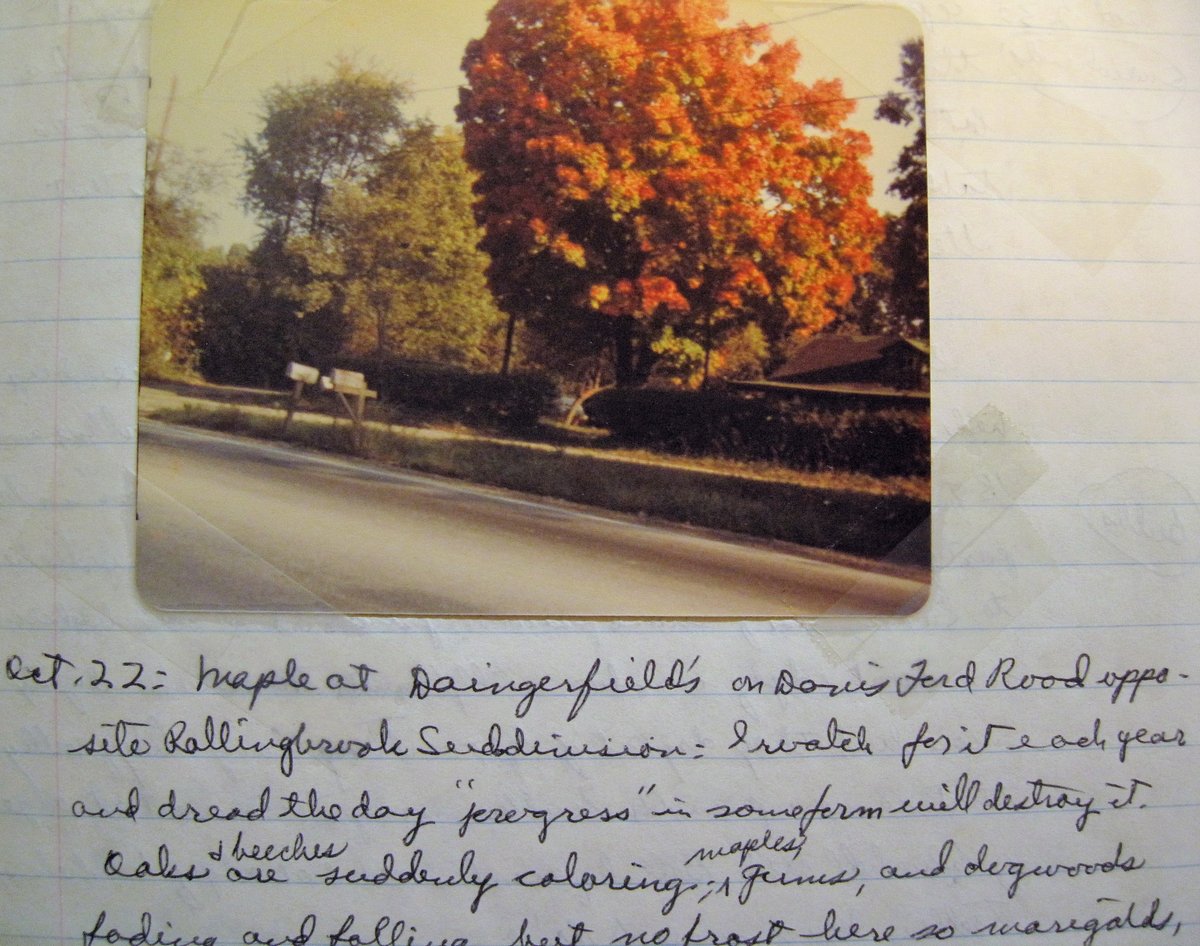 Oct. 22: Maple at Daingerfield's on Davis Ford Road oppo-
site Rollingbrook Subdivision: I watch for it each year
and dread the day "progress" in some form will destroy it.
Oaks & beeches are suddenly coloring; maples, gums, and dogwoods
fading and falling, but no frost here so marigolds,